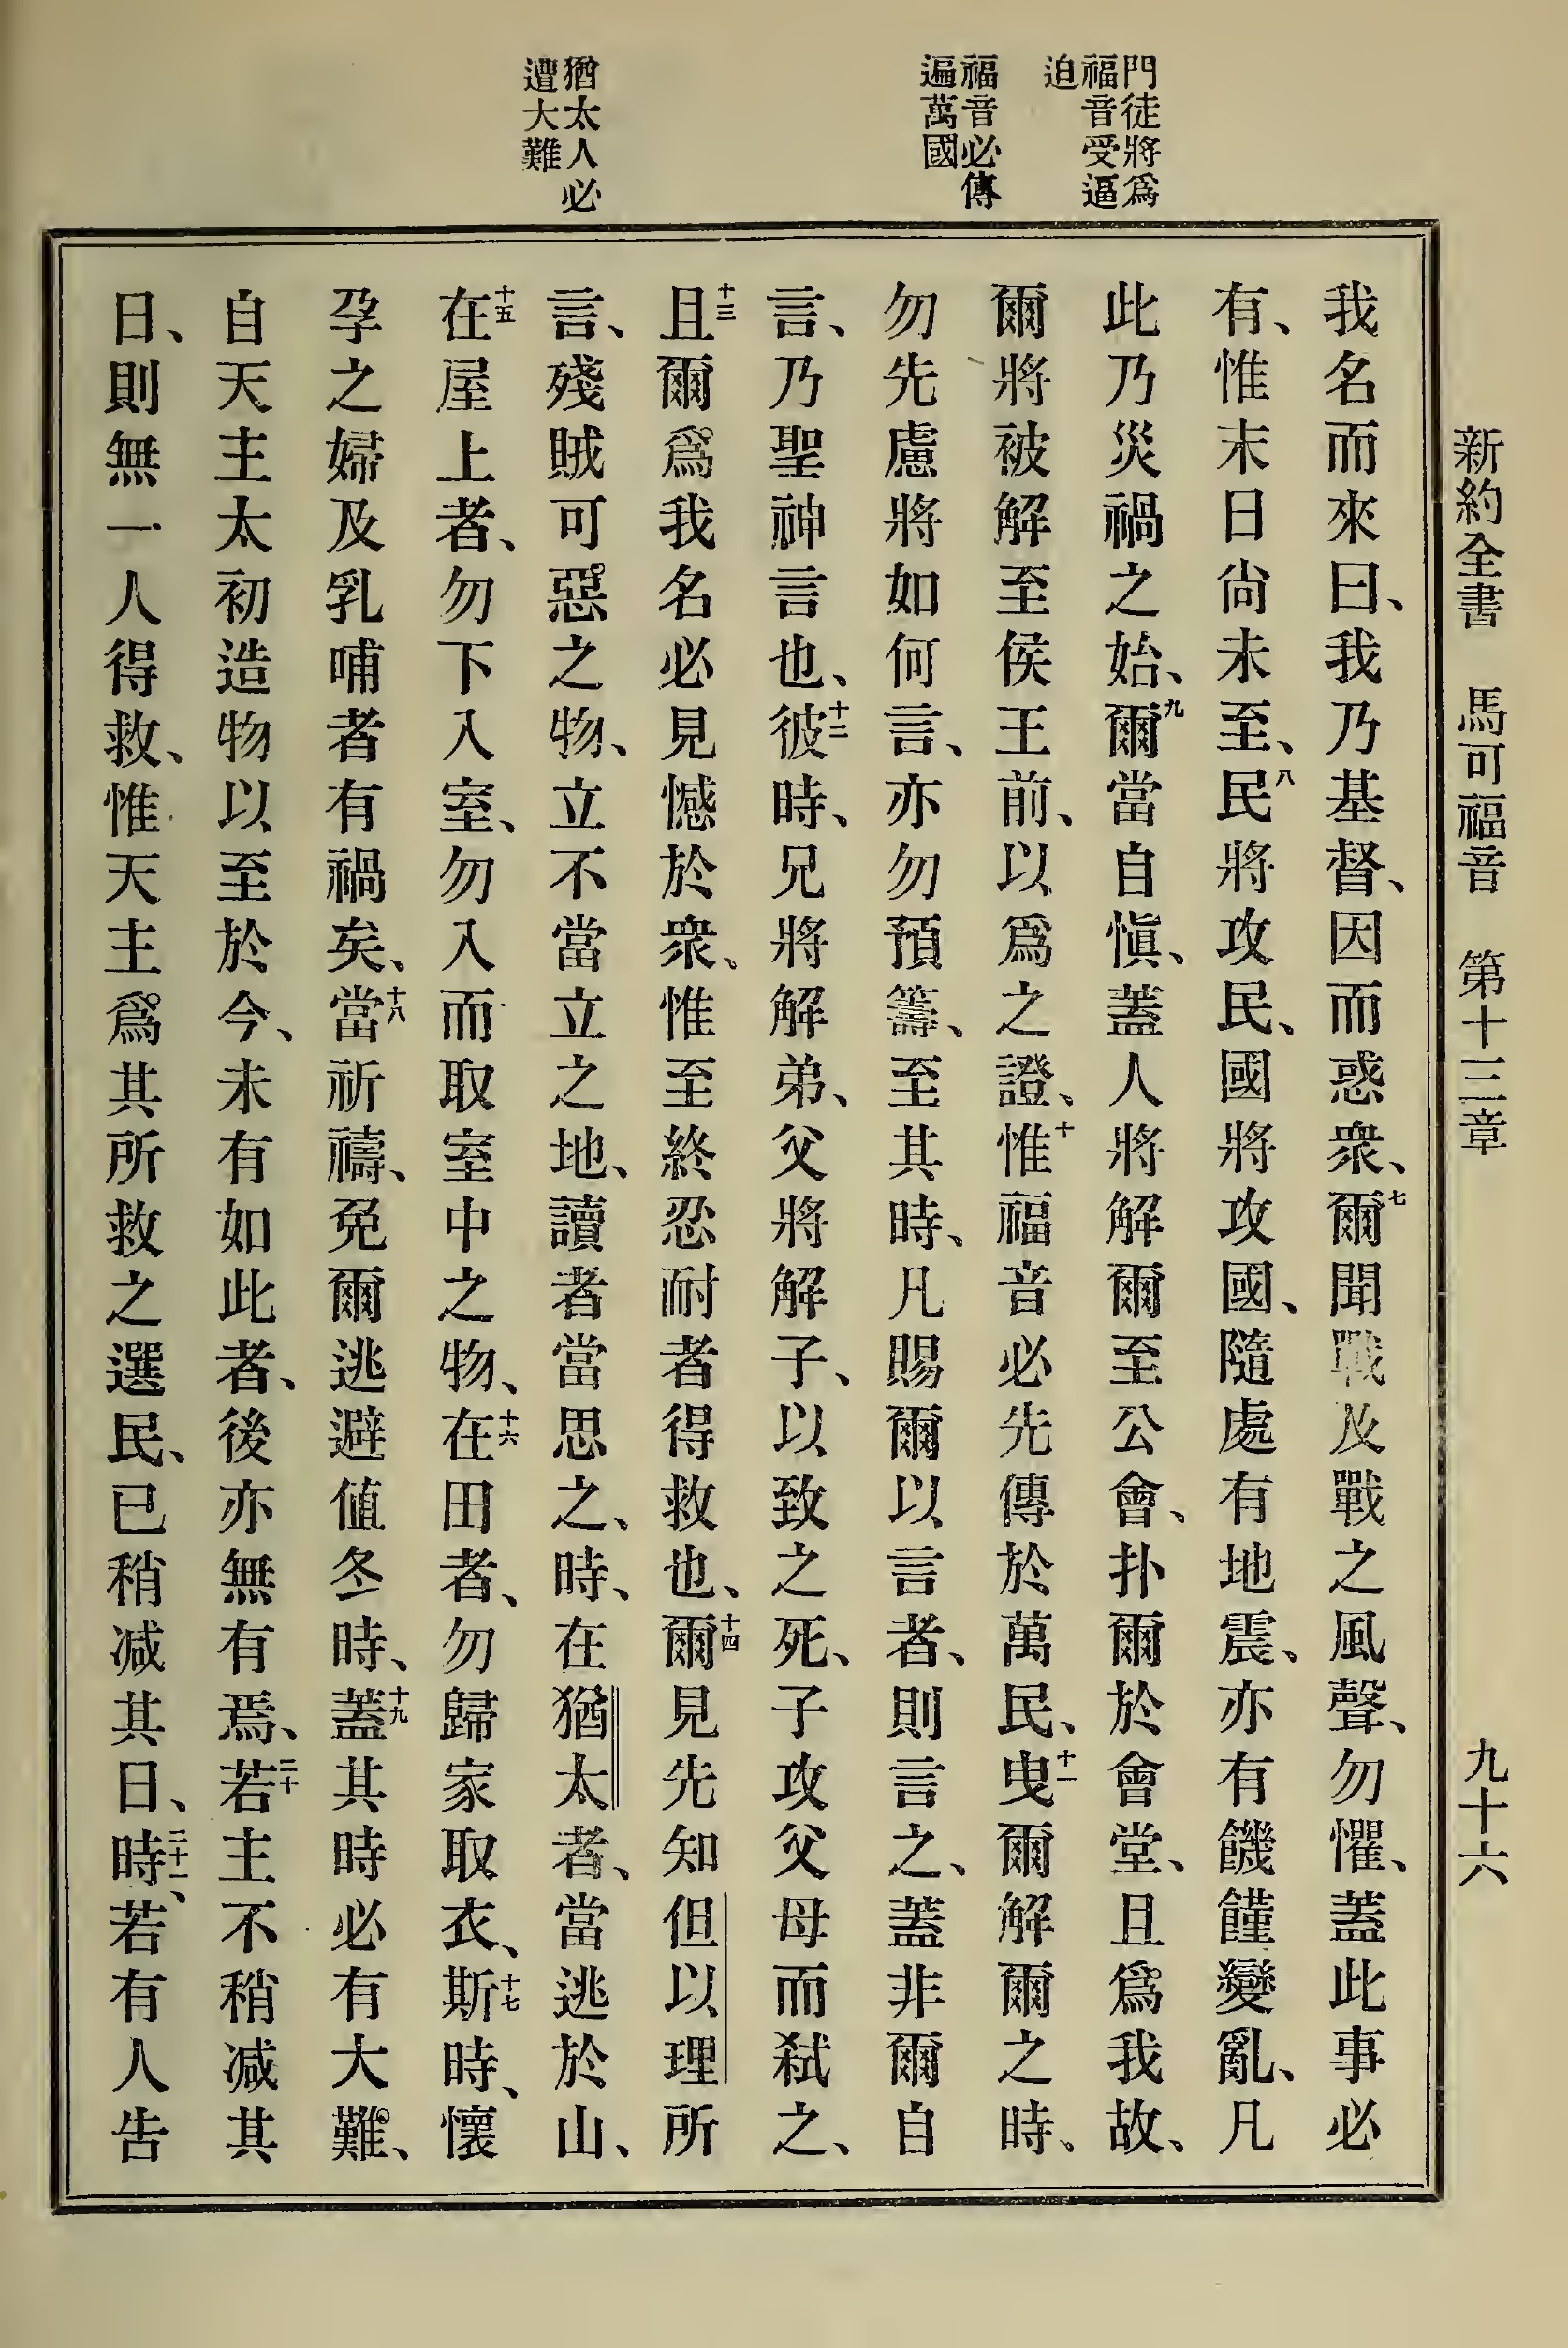 新約全書 馬可福音 第十三章 九十六
門徒將爲
福音受逼
迫
福音必傳
遍萬國
猶太人必
遭大難
我名而來曰、我乃基督、因而惑衆、七爾聞戰及戰之風聲、勿懼、蓋此事必
有、惟末日尙未至、八民將攻民、國將攻國、隨處有地震、亦有饑饉變亂、凡
此乃災禍之始、九爾當自愼、蓋人將解爾至公會、扑爾於會堂、且爲我故、
爾將被解至侯王前、以爲之證、十惟福音必先傳於萬民、十一曳爾解爾之時、
勿先慮將如何言、亦勿預籌、至其時、凡賜爾以言者、則言之、蓋非爾自
言、乃聖神言也、十二彼時、兄將解弟、父將解子、以致之死、子攻父母而弒之、
十三且爾爲我名必見憾於衆、惟至終忍耐者得救也、十四爾見先知但以理所
言、殘賊可惡之物、立不當立之地、讀者當思之、時、在猶太者、當逃於山、
十五在屋上者、勿下入室、勿入而取室中之物、十六在田者、勿歸家取衣、十七斯時、懷
孕之婦及乳哺者有禍矣、十八當祈禱、免爾逃避値冬時、十九蓋其時必有大難、
自天主太初造物以至於今、未有如此者、後亦無有焉、二十若主不稍減其
日、則無一人得救、惟天主爲其所救之選民、已稍減其日、二十一時、若有人吿